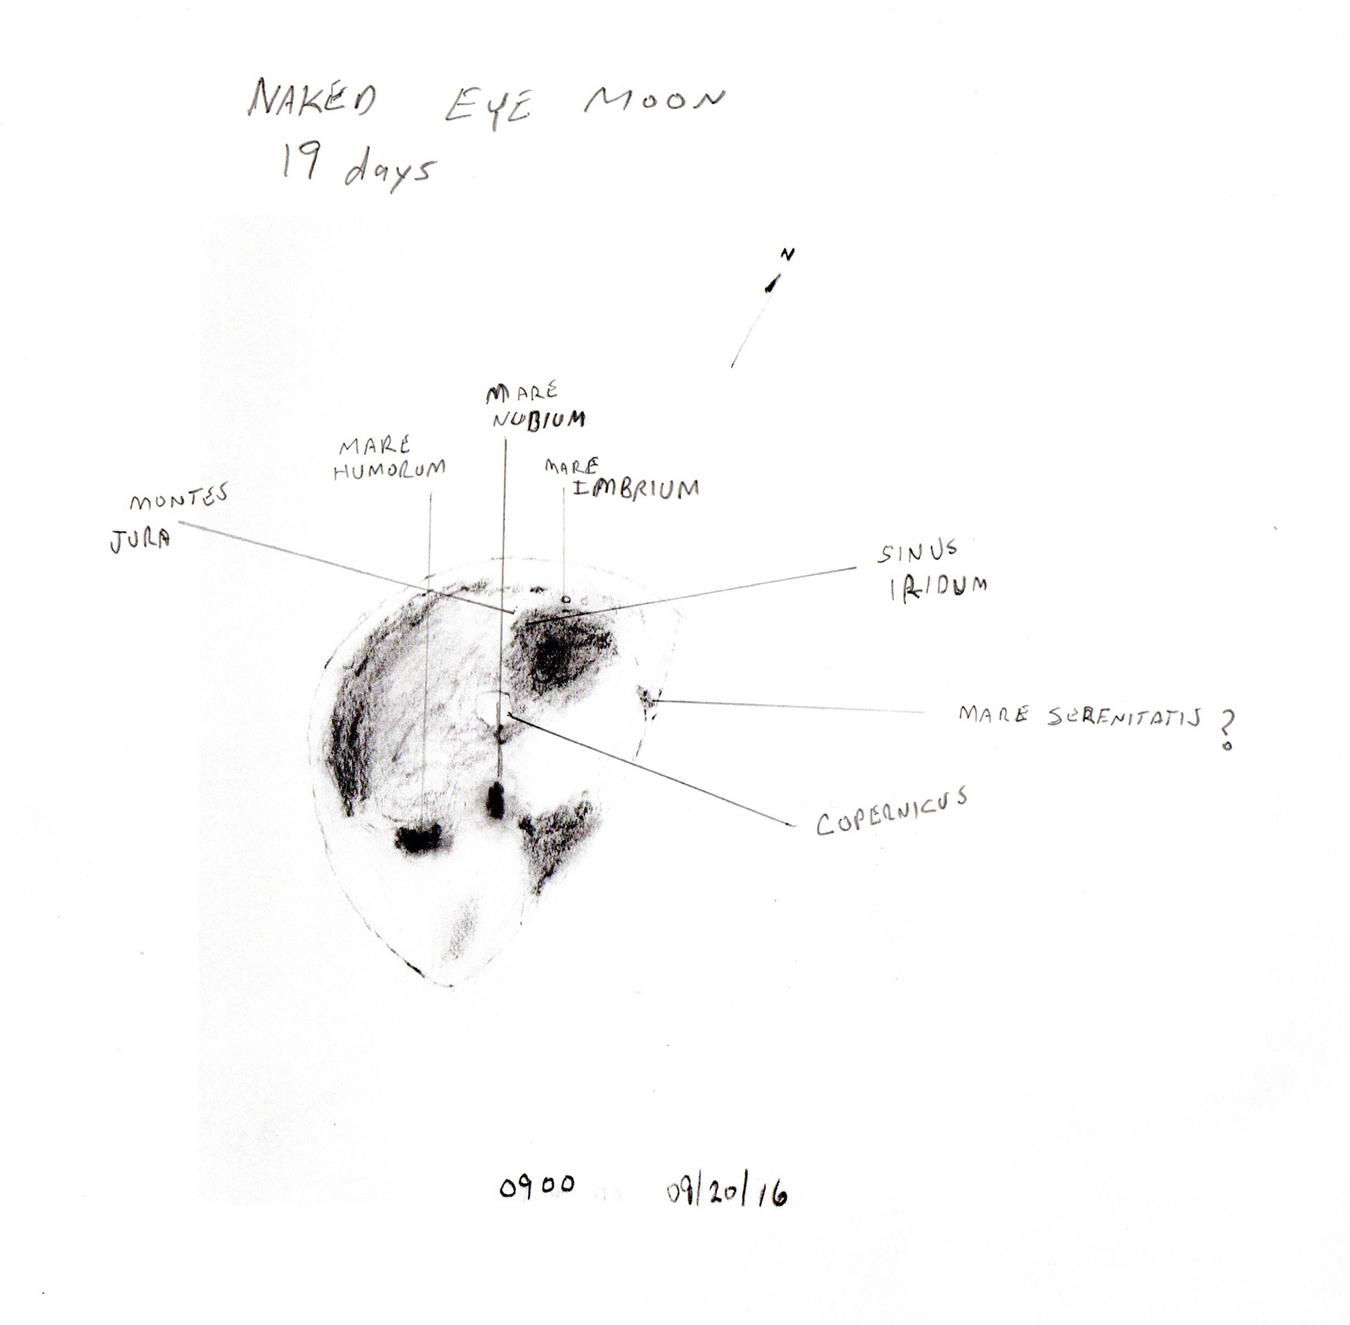 NAKED EYE MOON
19 days
N
MARE
NUBIUM
MARE
HUMORUM
MARE
IMBRIUM
MONTES
JURA
SINUS
IRIDUM
MARE SERENITATIS ?
COPERNICUS
0900 09/20/16